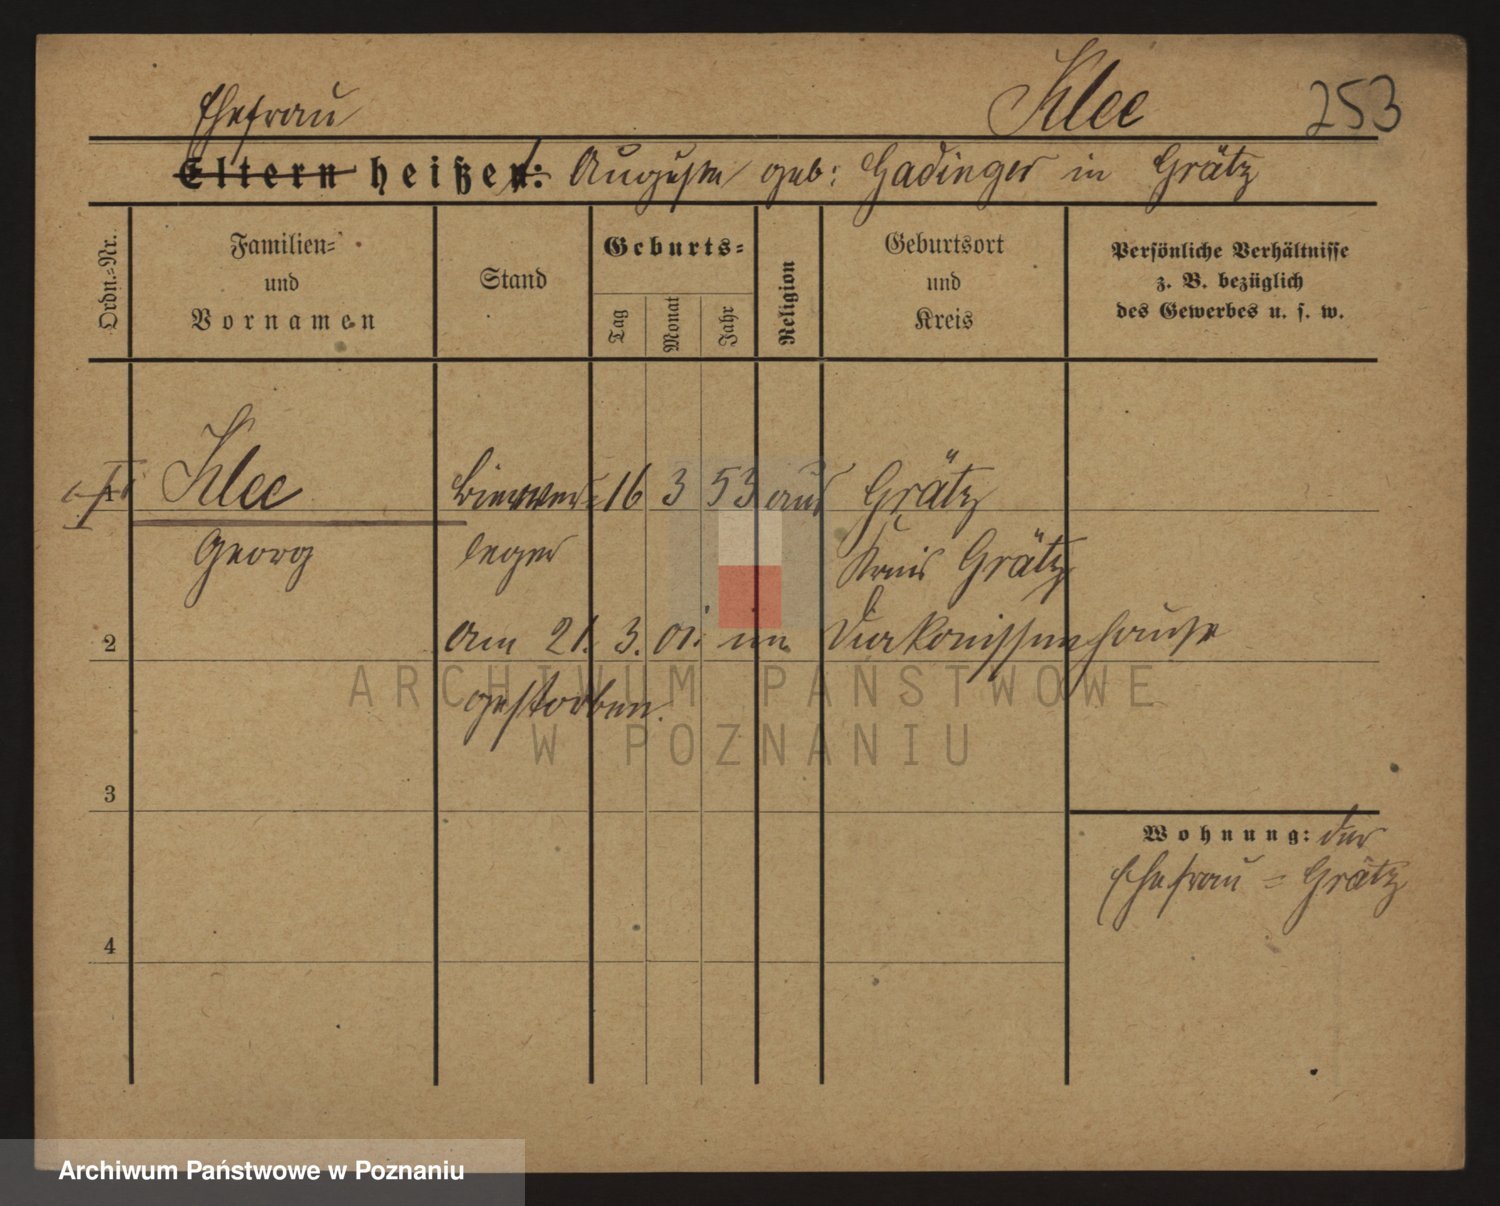 Klee 253
Ehefrau
Eltern heißen: Auguste geb: Gadinger in Grätz
Ordn.-Nr.
Familien-
und
Vornamen
Stand
Geburts-
Tag
Monat
Jahr
Religion
Geburtsort
und
Kreis
Persönliche Verhältnisse
z. B. bezüglich
des Gewerbes u. s. w.
Klee Bierver- 16 3 53 aus Grätz
Georg leger Kreis Grätz
2 am 21. 3. 01. im Diakonissenhause
gestorben.
ARCHIWUM PAŃSTWOWE
W POZNANIU
3
Wohnung: der
Ehefrau = Grätz
4
Archiwum Państwowe w Poznaniu